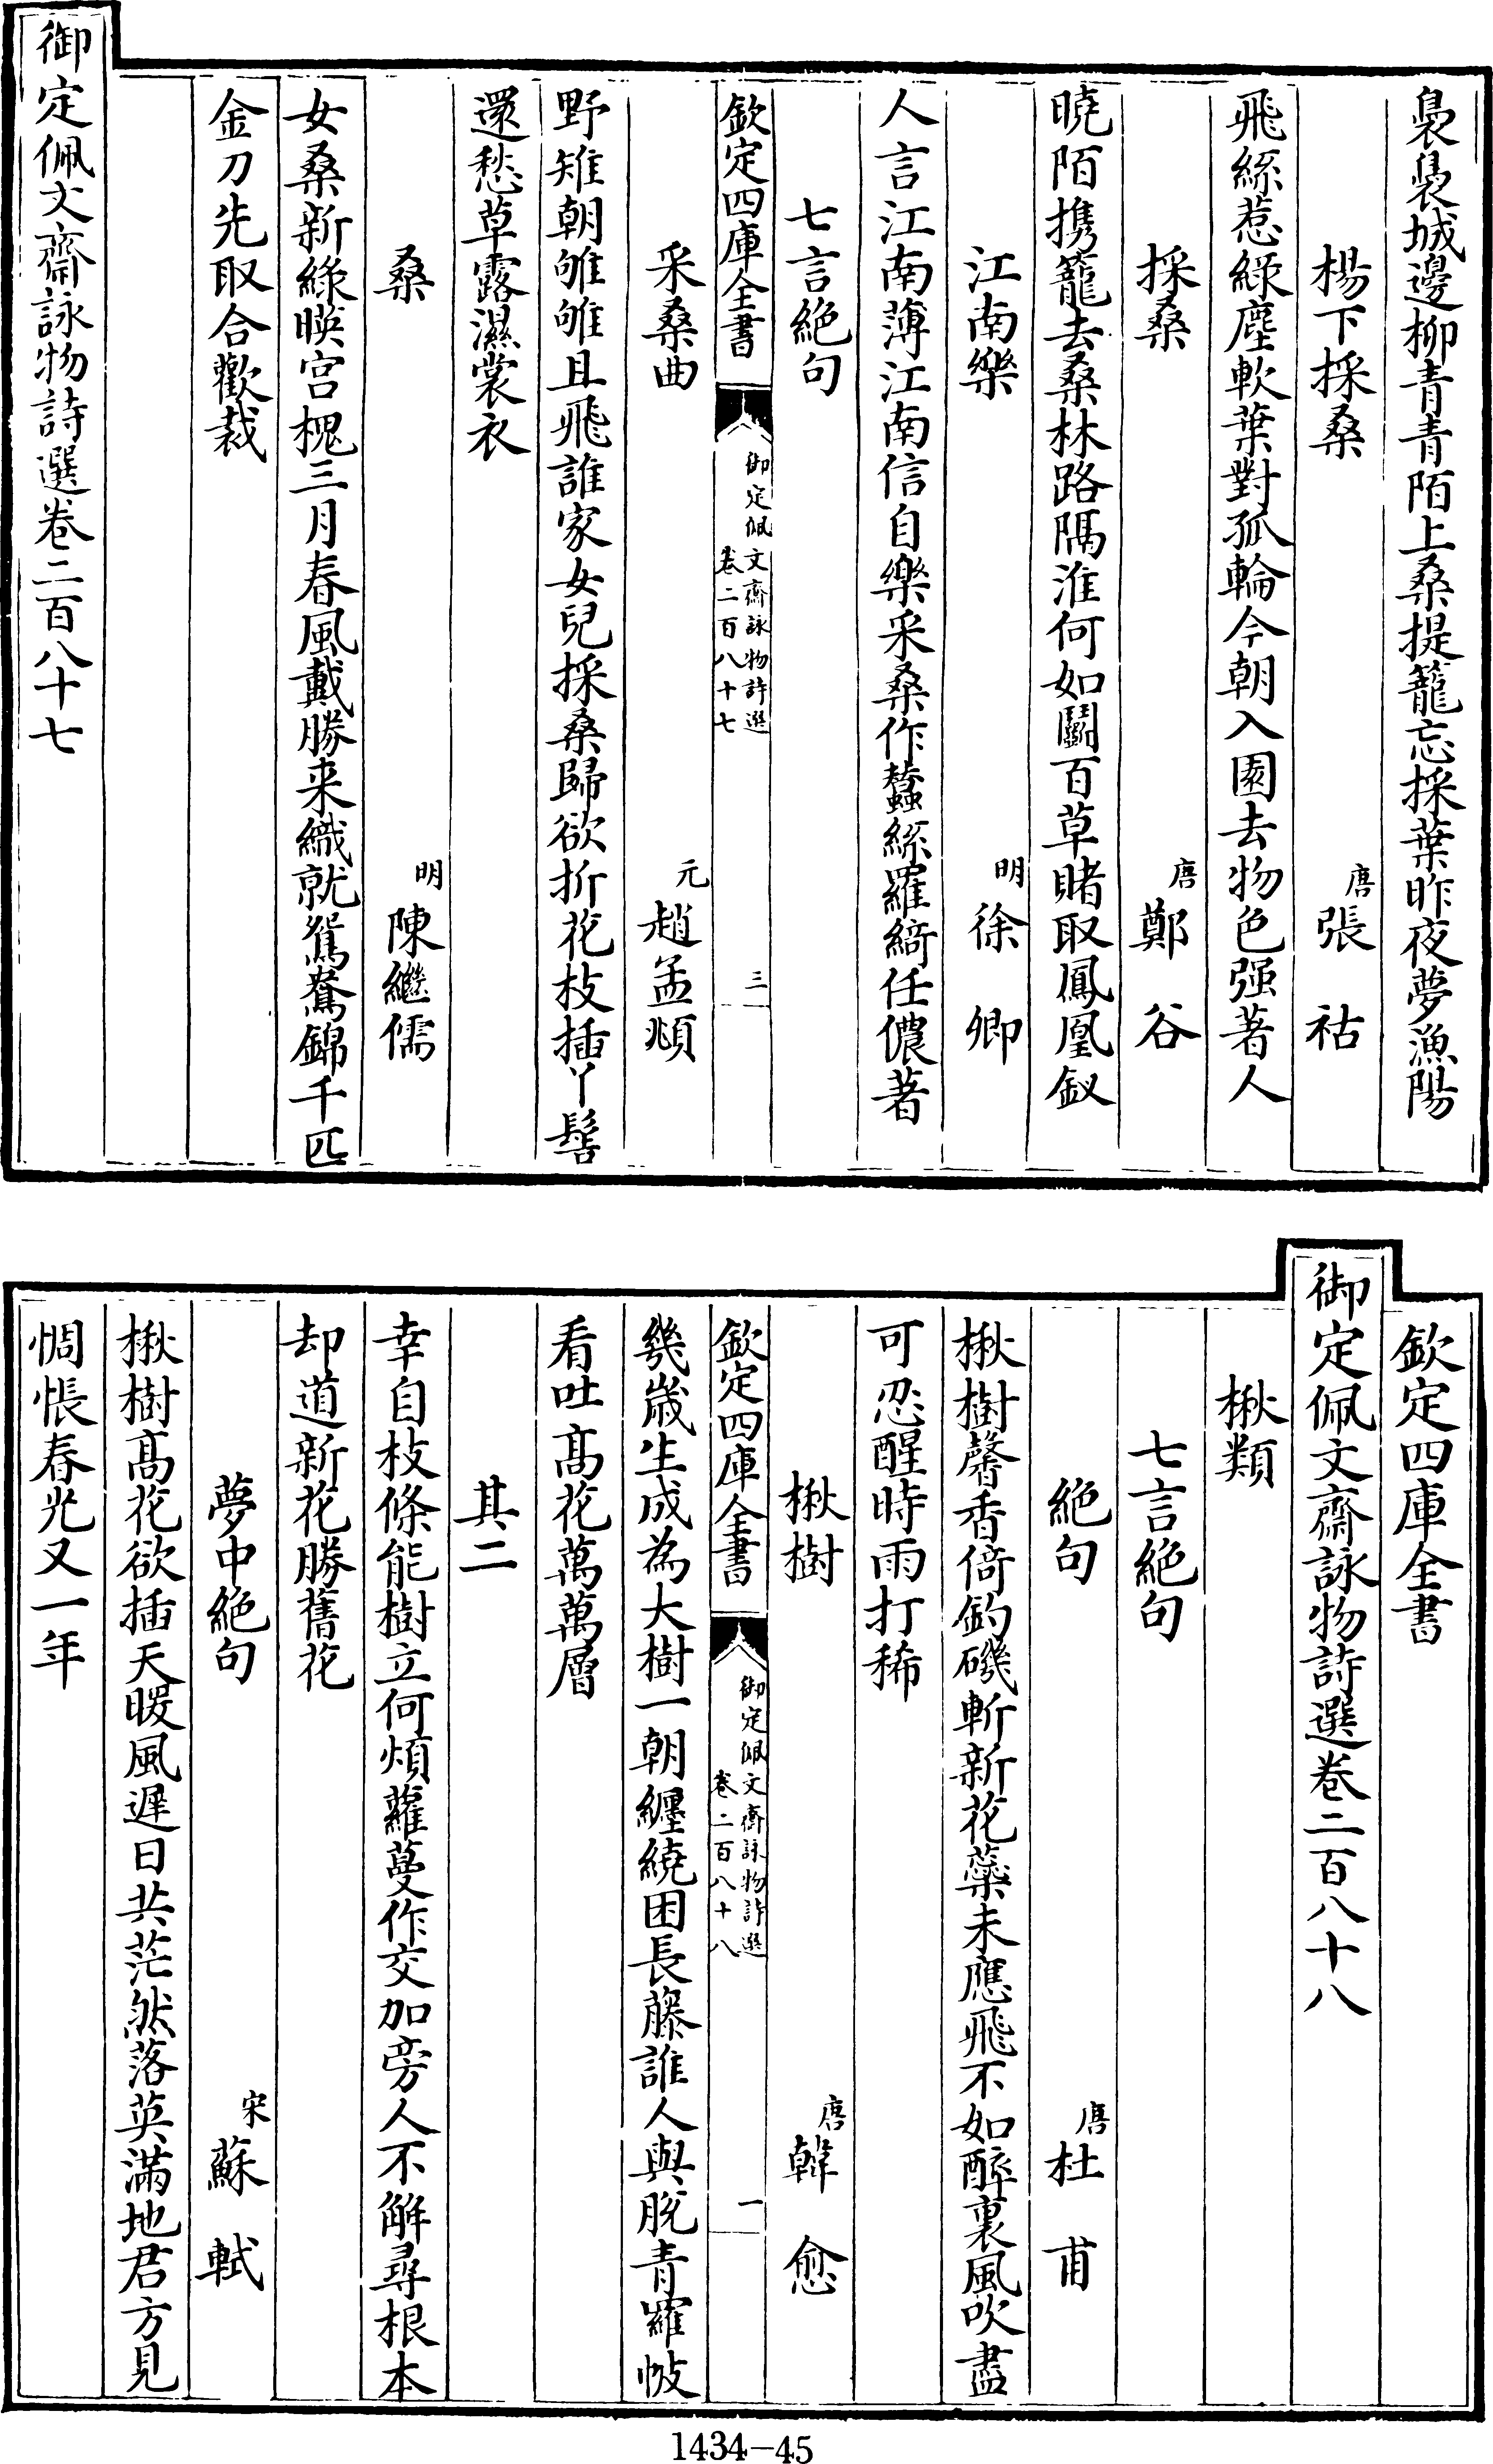 裊裊城邊柳青青陌上桑提籠忘採葉昨夜夢漁陽
楊下採桑 唐 張祜
飛絲惹綠塵軟葉對孤輪今朝入園去物色强著人
採桑 唐 鄭谷
曉陌攜籠去桑林路隔淮何如鬬百草賭取鳳凰釵
江南樂 明 徐卿
人言江南薄江南信自樂采桑作蠶絲羅綺任儂著
七言絶句
欽定四庫全書 御定佩文齋詠物詩選 卷二百八十七 三
采桑曲 元 趙孟頫
野雉朝雊雊且飛誰家女兒採桑歸欲折花枝插丫髻
還愁草露濕裳衣
桑 明 陳繼儒
女桑新綠暎宫槐三月春風戴勝来織就鴛鴦錦千匹
金刀先取合歡裁
御定佩文齋詠物詩選卷二百八十七
欽定四庫全書
御定佩文齋詠物詩選卷二百八十八
楸類
七言絶句
絶句 唐 杜甫
楸樹馨香倚釣磯斬新花蘂未應飛不如醉裏風吹盡
可忍醒時雨打稀
楸樹 唐 韓愈
欽定四庫全書 御定佩文齋詠物詩選 卷二百八十八 一
幾歲生成為大樹一朝纏繞困長藤誰人與脫青羅帔
看吐髙花萬萬層
其二
幸自枝條能樹立何煩蘿蔓作交加旁人不解尋根本
却道新花勝舊花
夢中絶句 宋 蘇軾
楸樹髙花欲插天暖風遲日共茫然落英滿地君方見
惆悵春光又一年
1434-45